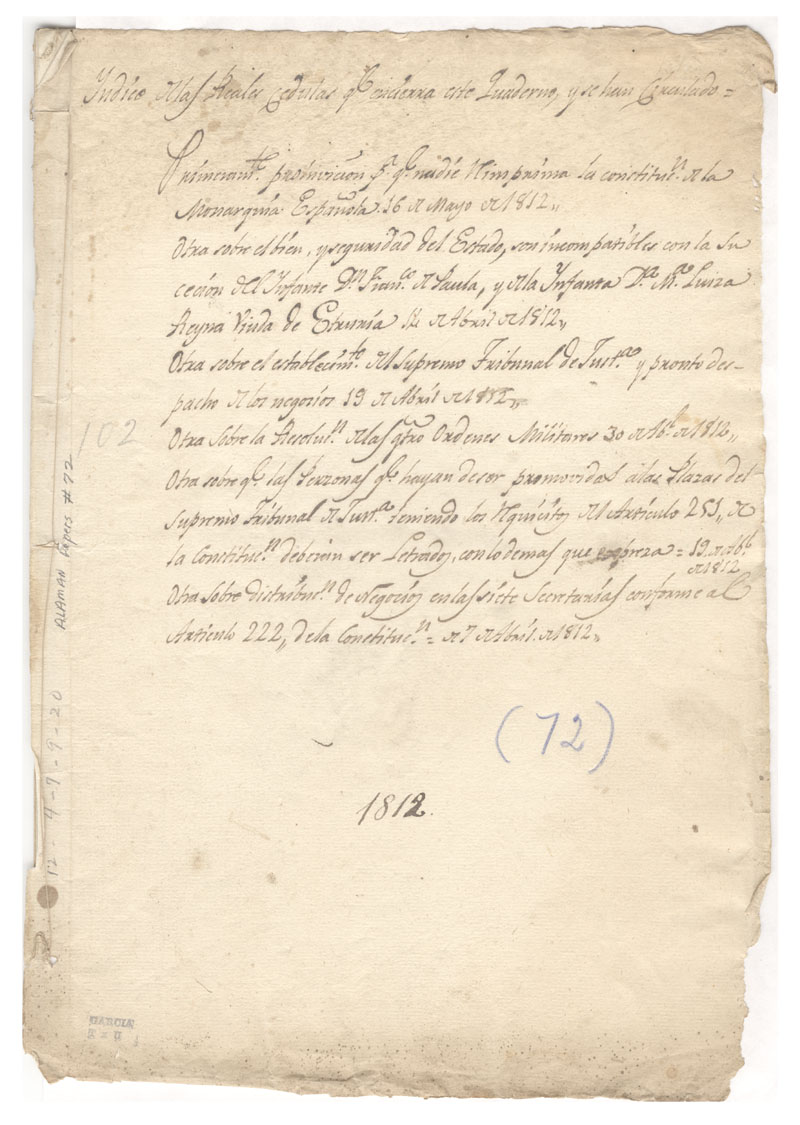 Yndice de las Reales Cedulas qe. encierra este Quaderno, y se han Circulado =
Primeramte. prohivicion pa. qe. nadie reimprima la constitucn. de la
Monarquia Española. 16 de Mayo de 1812,,
Otra sobre el bien, y seguridad del Estado, son incompatibles con la Su
cecion del Ynfante Dn. Franco. de Paula, y de la Ynfanta Da. Ma. Luiza
Reyna Viuda de Etruria de Abril de 1812,,
Otra sobre el establecimto. del Supremo Tribunal de Justa. y pronto des-
pacho de los negocios 19 de Abril de 1812,,
Otra Sobre la Resolucn. de las qtro Ordenes Militares 30 de de 1812,,
Otra sobre qe. las Perzonas qe. hayan de ser promovidas a las Plazas del
Supremo Tribunal de Justa. teniendo los requicitos del Articulo 251,, de
la Constitucn. deberán ser Letrados, con lo demas que expreza = 19 de
de 1812
Otra Sobre distribucn. de Negocios en las siete Secretarías conforme al
Artículo 222,, de la Constitucn. = de 7 de Abril de 1812,,
102
(72)
1812.
ALAMAN Papers #72
12-4-7-9-20
GARCIA